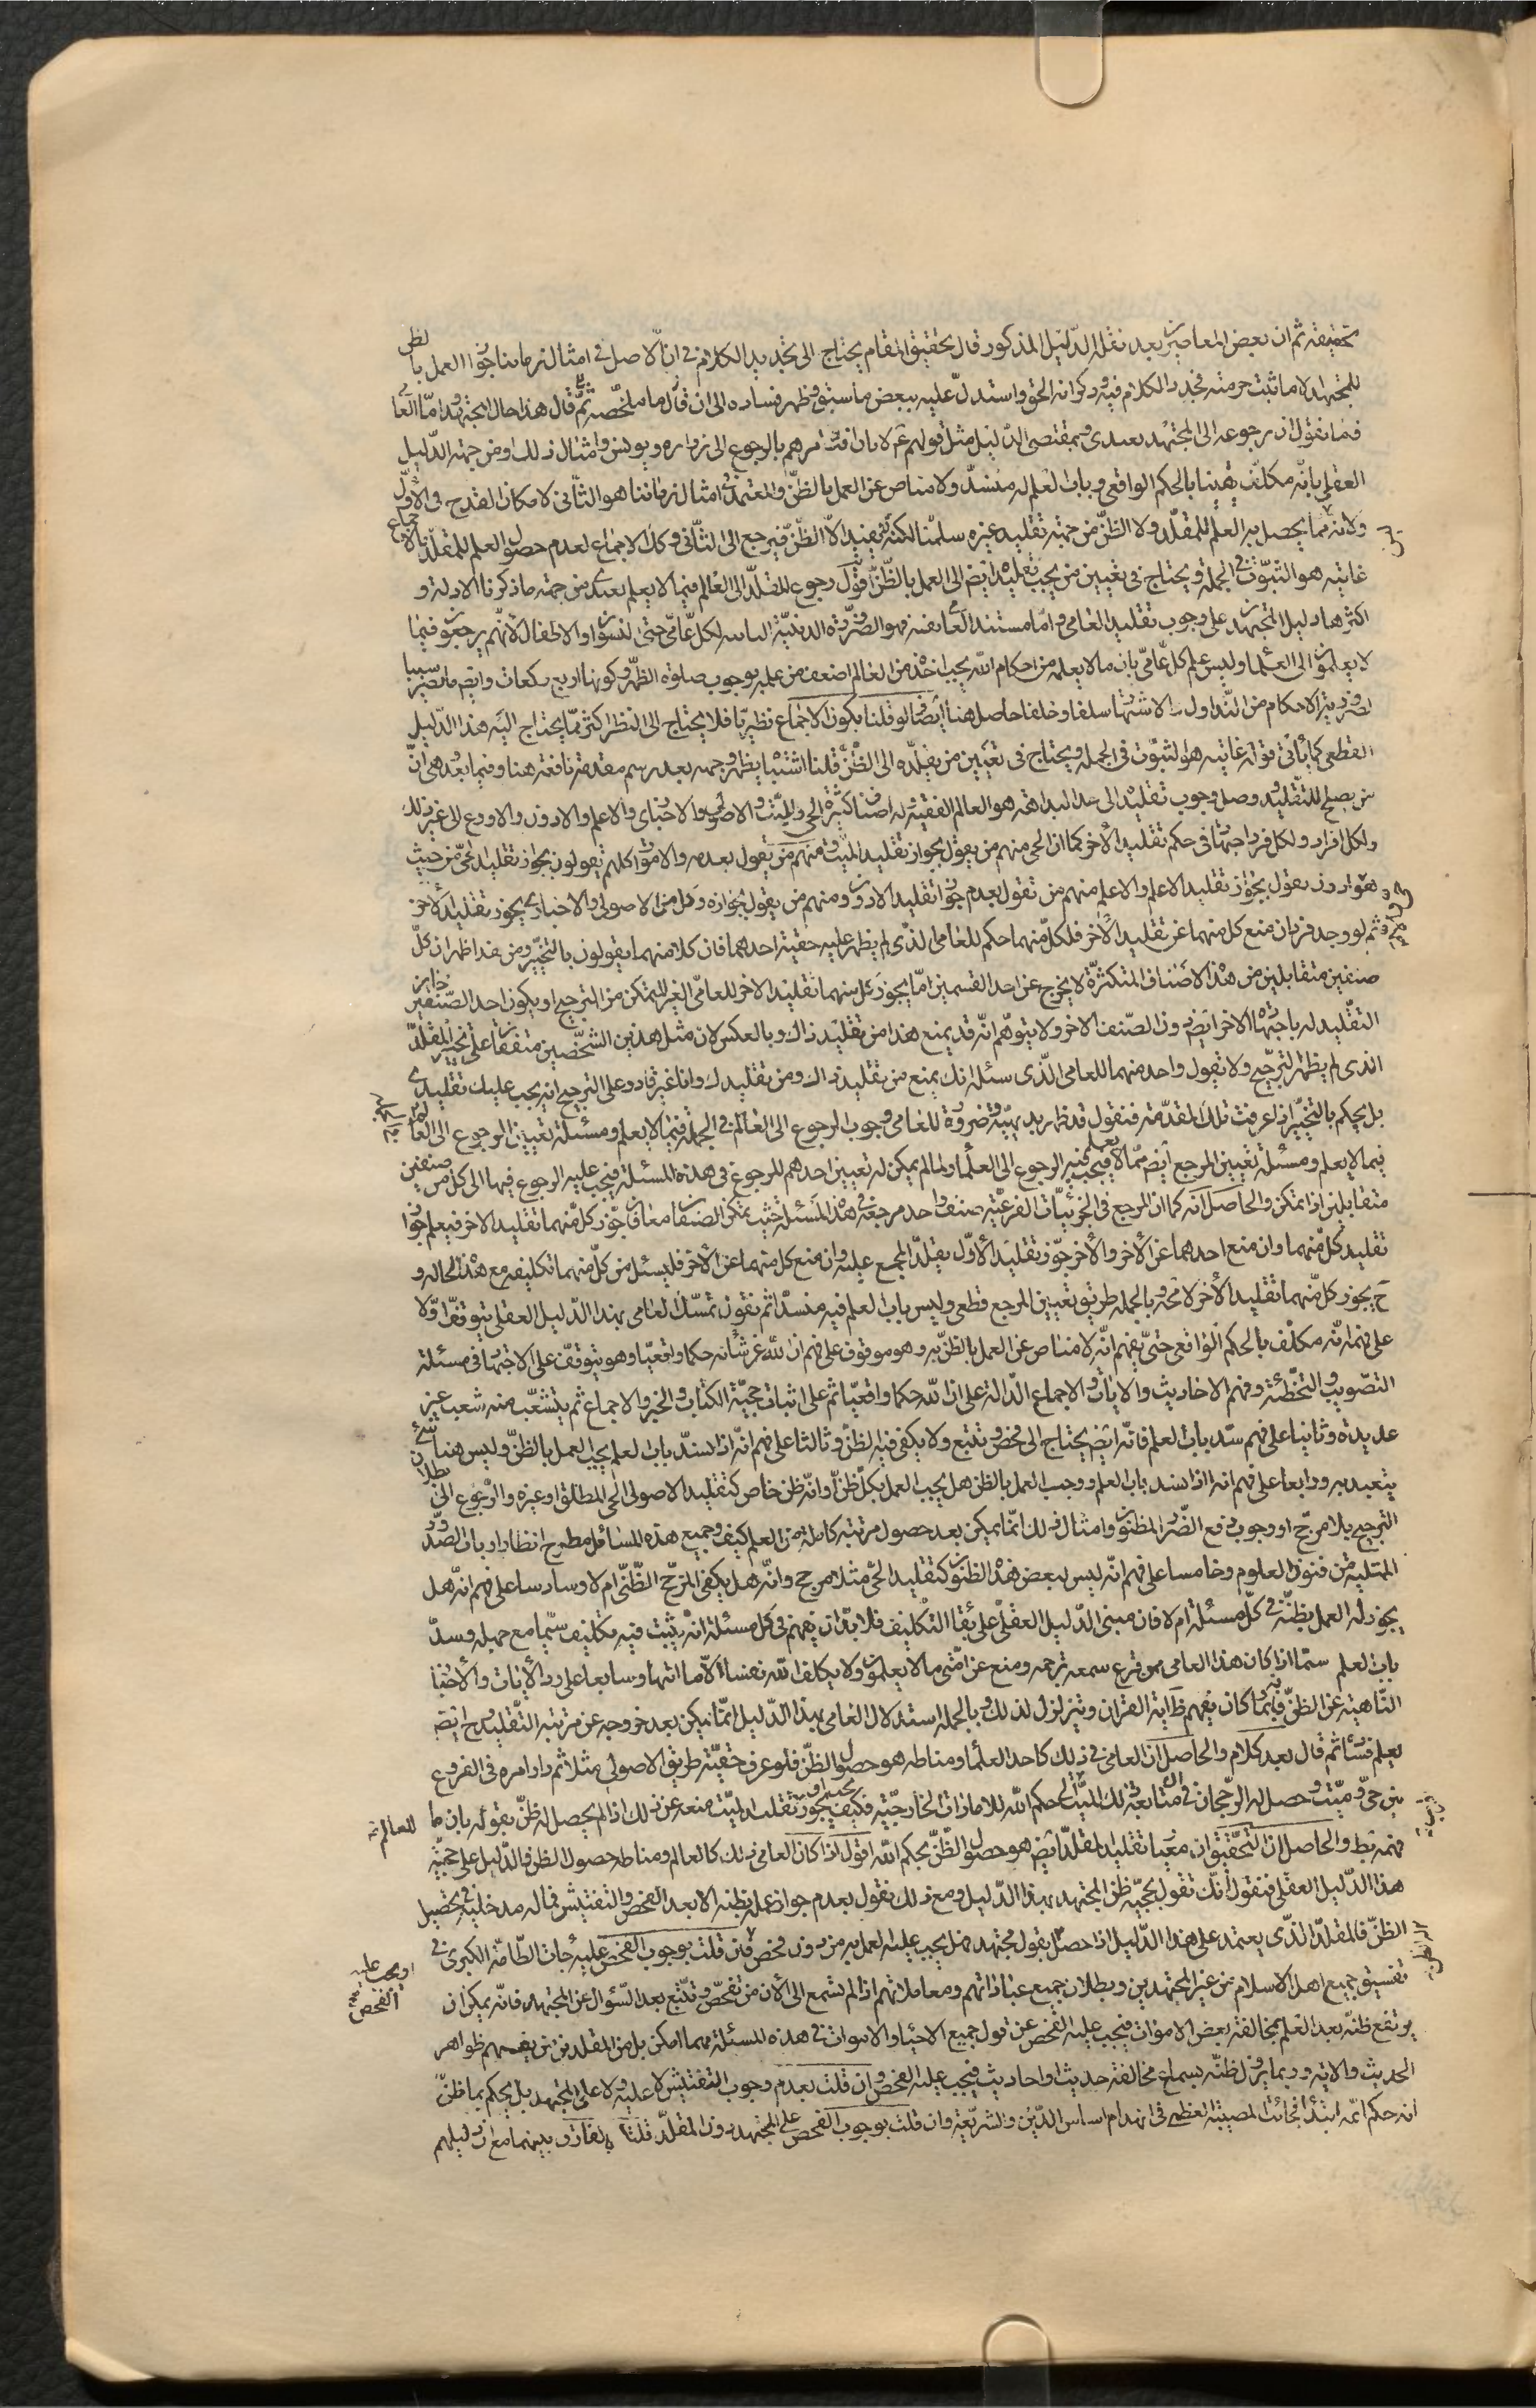 تحقيقه ثم ان بعض المعاصرين بعد نقل الدّليل المذكور قال تحقيق المقام يحتاج الى تجديد الكلام فى ان الاصل فى امثال زماننا جواز العمل بالظن
للمجتهد الا ما ثبت حرمته فجدد الكلام فيه و ذكر انه الحق و استدلّ عليه ببعض ما سبق و ظهر فساده الى ان قال ما ملخّصه ثمّ قال هذا حال المجتهد و امّا العامى
فما نقول ان رجوعه الى المجتهد تعبدى و بمقتضى الدّليل مثل قولهم ع لابان افت و امرهم بالرجوع الى زراره و يونس و امثال ذلك او من جهة الدّليل
العقلى بانّه مكلّف يقينا بالحكم الواقعى و باب العلم له منسدّ و لا مناص عن العمل بالظنّ و المعتمد فى امثال زماننا هو الثّانى لامكان القدح فى الاوّل
و لانه مما يحصل به العلم للمقلّد و لا الظنّ من جهة تقليد غيره سلمنا لكنه لا يفيد الّا الظنّ فيرجع الى الثّانى و كك الاجماع لعدم حصول العلم للمقلّد بالاجماع
غايته هو الثبوت فى الجملة و يحتاج فى تعيين من يجب تقليده ايض الى العمل بالظّنّ اقول رجوع المقلّد الى العالم فيما لا يعلم تعبدى من جهة ما ذكرنا الادلة و
اكثرها دليل المجتهد على وجوب تقليد العامى و امّا مستند العامى نفسه فهو الضّرورة الدينيّة الثابتة لكل عامّى حتى النسوان و الاطفال لانّهم يرجعون فيما
لا يعلمون الى العلماء و ليس علم كل عامّى بان ما لا يعلمه من احكام الله يجب اخذه من العالم اضعف من علمه بوجوب صلوة الظّهر و كونها اربع ركعات و ايض ما يصير سببا
لضرورية الاحكام من التّداول و الاشتهار سلفا و خلفا حاصل هنا ايضا و لو قلنا بكون الاجماع نظريّا فلا يحتاج الى النظر اكثر ممّا يحتاج اليه هذا الدّليل
القطعى كما يأتى قوله غايته هو الثبوت فى الجملة و يحتاج فى تعيين من يقلّده الى الظنّ قلنا اشتباه يظهر وجهه بعد رسم مقدمة نافعة هنا و فيما بعد هى انّ
من يصلح للتقليد و وصل وجوب تقليده الى حد البداهة هو العالم الفقيه و له اصناف كثيرة الحى و الميّت و الاصولى و الاخبارى و الاعلم و الادون و الاورع الى غير ذلك
و لكل افراد و لكل فرد اجتهاد فى حكم تقليد الآخر كما ان الحى منهم من يقول بجواز تقليد الميّت و منهم من يقول بعدمه و الاموات كلهم يقولون بجواز تقليد الحىّ من حيث
هو و الادون يقول بجواز تقليد الاعلم و الاعلم منهم من يقول بعدم جواز تقليد الادون و منهم من يقول بجوازه و كل من الاصولى و الاخبارى يجوز تقليد الآخر
ثم لو وجد فردان منع كل منهما عن تقليد الآخر فلكلّ منهما حكم للعامى الّذى لم يظهر عليه حقية احدهما فان كلا منهما يقولون بالتخيّر و من هذا ظهر ان كلّ
صنفين متقابلين من هذه الاصناف المتكثرة لا يخرج عن احد القسمين امّا يجوز كل منهما تقليد الاخر للعامّى الغير المتمكن من الترجيح او يكون احد الصّنفين جايز
التقليد له باجتهاد الآخر ايض دون الصّنف الآخر و لا يتوهّم انّه قد يمنع هذا من تقليد ذاك و بالعكس لان مثل هذين الشّخصين متفقان على تخيير المقلّد
الذى لم يظهر الترجيح و لا يقول واحد منهما للعامى الّذى سئله انك يمنع من تقليد ذاك و من تقليدك و انا غير قادر على الترجيح انه يجب عليك تقليدى
بل يحكم بالتخيّر اذا عرفت تلك المقدّمة فنقول قد ظهر بديهة و ضرورة للعامى وجوب الرجوع الى العالم فى الجملة فيما لا يعلم و مسئلة تعيين الرجوع الى العالم
فيما لا يعلم و مسئلة تعيين المرجع ايض ممّا لا يعلم فيجب فيه الرجوع الى العلماء و لما لم يمكن له تعيين احدهم للرجوع فى هذه المسئلة فيجب عليه الرجوع فيها الى كل من صنفين
متقابلين اذا تمكن و الحاصل انه كما ان المرجع فى الجزئيّات الفرعيّة صنف واحد مرجعه فى هذه المسئلة حيث تمكن الصنفان معا فان جوّز كل منهما تقليد الاخر فيعلم جواز
تقليد كل منهما و ان منع احدهما عن الآخر و الآخر جوّز تقليد الاوّل يقلّد المجمع عليه و ان منع كل منهما عن الآخر فليسئل من كلّ منهما تكليفه مع هذه الحالة و
ح يجوز كل منهما تقليد الآخر لا محة و بالجملة طريق تعيين المرجع قطعى و ليس باب العلم فيه منسدّا ثم نقول تمسّك العامى بهذا الدّليل العقلى يتوقف اوّلا
على فهم انّه مكلّف بالحكم الواقعى حتى يفهم انّه لا مناص عن العمل بالظنّ به و هو موقوف على فهم ان لله عز شأنه حكما واقعيّا و هو يتوقف على الاجتهاد فى مسئلة
التصويب و التخطئة و فهم الاحاديث و الآيات و الاجماع الدّالة على ان لله حكما واقعيّا ثم على اثبات حجيّة الكتاب و الخبر و الاجماع ثم يتشعّب منه شعب غير
عديدة و ثانيا على فهم سدّ باب العلم فانّه ايض يحتاج الى فحص و تتبع و لا يكفى فيه الظنّ و ثالثا على فهم انّه اذا انسدّ باب العلم يجب العمل بالظنّ و ليس هنا شئ
يتعبد به و رابعا على فهم انه اذا انسد باب العلم و وجب العمل بالظن هل يجب العمل بكلّ ظنّ او انّه ظن خاص كتقليد الاصولى الحى المطلق او غيره و الرّجوع الى بطلان
الترجيح بلا مرجّح او وجوب دفع الضّرر المظنون و امثال ذلك انّما يمكن بعد حصول مرتبة كاملة من العلم كيف و جميع هذه المسائل مطرح انظار ارباب الصّدور
الممتلية من فنون العلوم و خامسا على فهم انّه ليس لبعض هذه الظنون كتقليد الحى مثلا مرجح و انّه هل يكفى المرجّح الظّنّى ام لا و سادسا على فهم انّه هل
يجوز له العمل بظنّه فى كلّ مسئلة ام لا فان مبنى الدّليل العقلى على بقاء التكليف فلا بدّ ان يفهم فى كل مسئلة انه يثبت فيه تكليف سيّما مع جهله و سدّ
باب العلم سيّما اذا كان هذا العامى ممن قرع سمعه ترجمه و منع عن امّتى ما لا يعلمون و لا يكلف الله نفسا الّا ما اتيها و سابعا على رد الآيات و الاخبار
النّاهية عن الظنّ فانّه ربما كان يفهم ظ آية القران و يتزلزل لذلك و بالجملة استدلال العامى بهذا الدّليل انّما يمكن بعد خروجه عن مرتبة التّقليد و ح ايض
يعلم فساد ثم قال بعد كلام و الحاصل ان العامى فى ذلك كاحد العلماء و مناطه هو حصول الظنّ فلو عرف حقيّة طريق الاصولى مثلا ثم دار امره فى الفروع
بين حىّ و ميّت و حصل له الرّجحان فى متابعة ذلك الميّت لحكم الله للامارات الخارجيّة فكيف يجوز تقليد الميّت منعه عن ذلك اذا لم يحصل له ظنّ بقوله بان ما
فهمه قط و الحاصل ان التّحقيق ان معيار تقليد المقلّد ايض هو حصول الظّنّ بحكم الله اقول اذا كان العامى فى ذلك كالعالم و مناطه حصول الظنّ و الدّليل على حجيّته
هذا الدّليل العقلى فنقول انّك تقول بحجيّة ظن المجتهد بهذا الدّليل و مع ذلك نقول بعدم جواز عمله بظنه الا بعد الفحص و التفتيش فى ما له مدخلية فى تحصيل
الظنّ فالمقلّد الذّى يعتمد على هذا الدّليل اذا حصل بقول مجتهد هل يجب عليه العمل به من دون فحص فان قلت بوجوب الفحص عليه جاءت الطّامة الكبرى فى
تفسيق جميع اهل الاسلام من غير المجتهدين و بطلان جميع عباداتهم و معاملاتهم اذ لم نسمع الى الآن من تفحّص و تتّبع بعد السّؤال عن المجتهد فانّه يمكن ان
يرتفع ظنّه بعد العلم بمخالفة بعض الاموات فيجب عليه الفحص عن قول جميع الاحياء و الاموات فى هذه المسئلة مهما امكن بل من المقلدين من يفهم ظواهر
الحديث و الآية و ربما يزول ظنّه بسماع مخالفة حديث او احاديث فيجب عليه الفحص و ان قلت بعدم وجوب التفتيش لا عليه و لا على المجتهد بل يحكم بما ظنّ
انه حكم الله ابتداء فجائت المصيبة العظمى فى انهدام اساس الدّين و الشّريعة و ان قلت بوجوب الفحص على المجتهد دون المقلّد قلنا ما الفارق بينهما مع ان دليلهم
للعالم
او يجب عليه الفحص